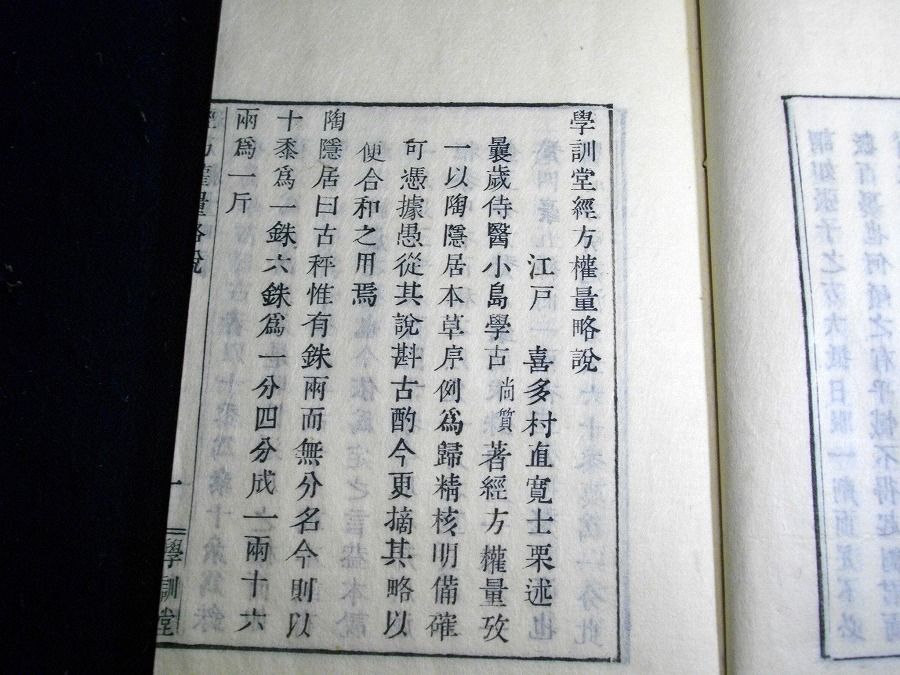 學訓堂經方權量略說
江戶　喜多村直寬士栗述
曩歲侍醫小島學古尚質著經方權量攷
一以陶隱居本草序例爲歸精核明備確
可憑據愚從其說斟古酌今更摘其略以
便合和之用焉
陶隱居曰古秤惟有銖兩而無分名今則以
十黍爲一銖六銖爲一分四分成一兩十六
兩爲一斤
經方權量略說　一　學訓堂